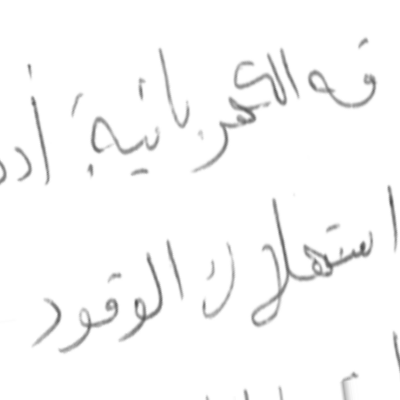 قه الكهربائية أدد
استهلاك الوقود